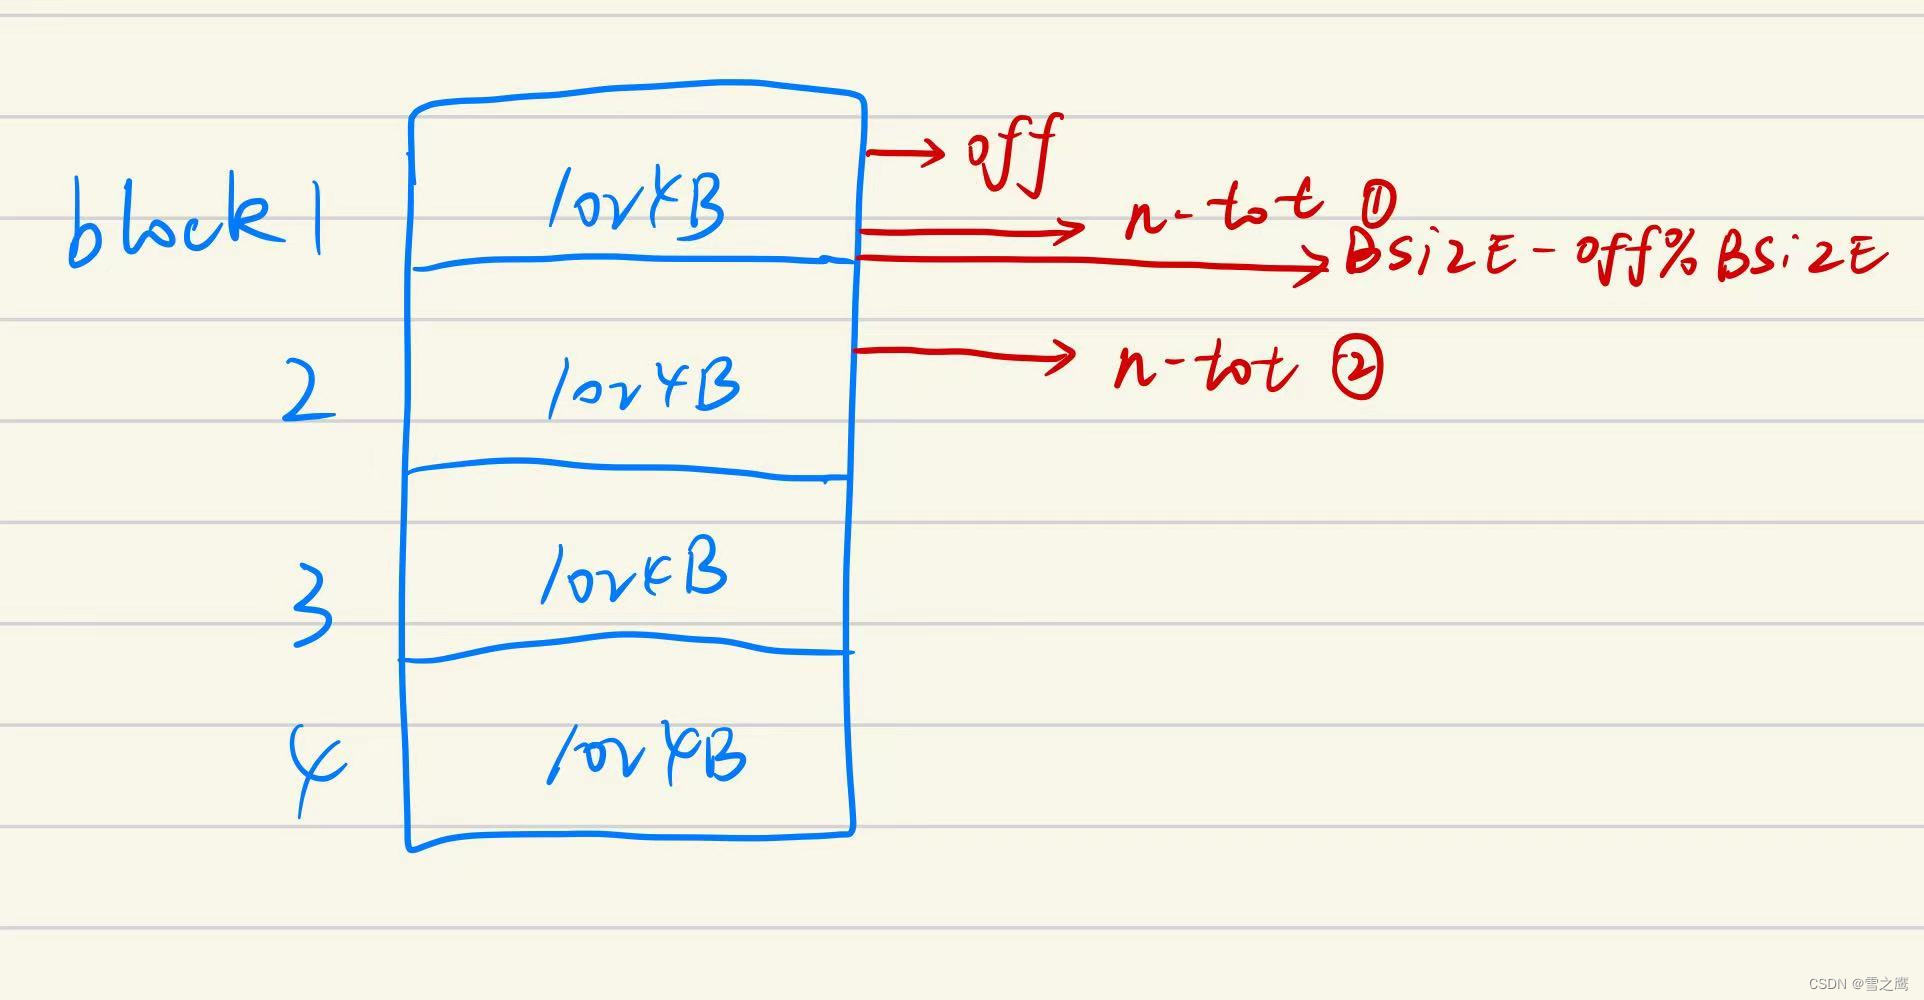 off
block1 1024B
n-tot ①
BSiZE-off%BSiZE
2 1024B
n-tot ②
3 1024B
4 1024B
CSDN @雪之鹰